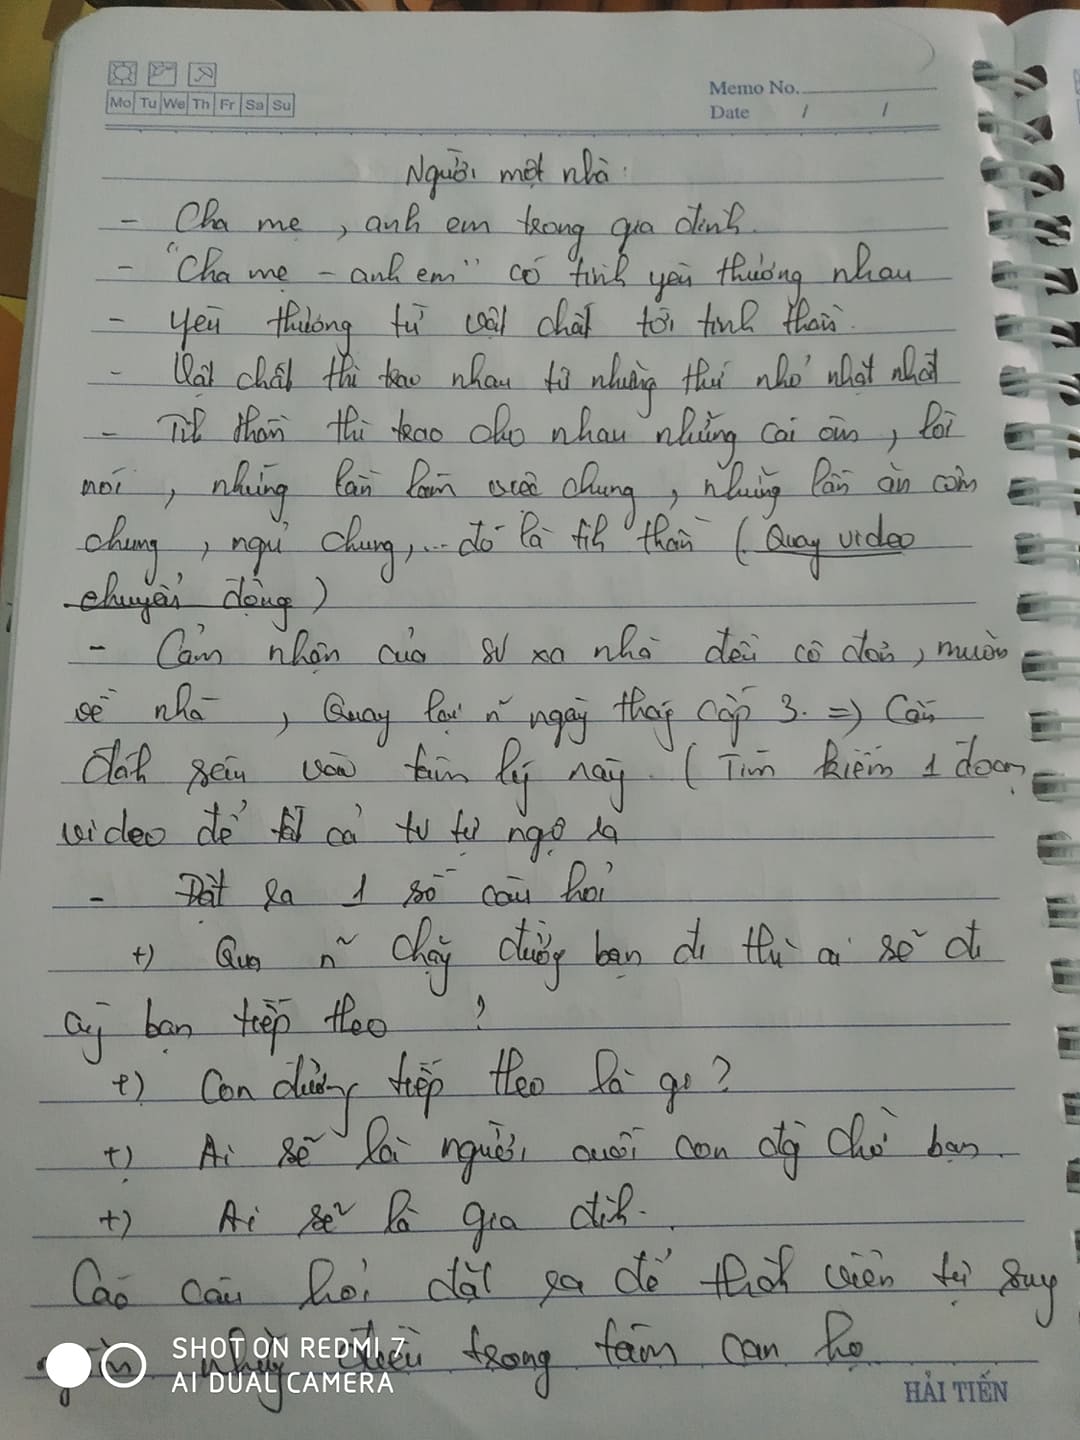 Mo Tu We Th Fr Sa Su
Memo No.
Date / /
Người một nhà:
- Cha mẹ, anh em trong gia đình.
- "Cha mẹ - anh em" có tình yêu thương nhau
- yêu thương từ vật chất tới tinh thần.
- Vật chất thì trao nhau từ những thứ nhỏ nhặt nhất
- Tih thần thì trao cho nhau những cái ôm, lời
nói, những lần làm việc chung, những lần ăn cơm
chung, ngủ chung,... đó là tih thần (Quay video
chuyển động)
- Cảm nhận của sv xa nhà đều cô đơn, muốn
về nhà, Quay lại ñ ngày thág cấp 3. => Cần
đáh sâu vào tâm lý này. (Tìm kiếm 1 đoạn
video để tất cả tv tự ngộ ra
- Đặt ra 1 số câu hỏi
+) Qua ñ chặg đườg bạn đi thì ai sẽ đi
cùg bạn tiếp theo ?
+) Con đường tiếp theo là gì?
+) Ai sẽ là người cuối con đg chờ bạn.
+) Ai sẽ là gia đìh.
Các câu hỏi đặt ra để thàh viên tự suy
điều trong tâm can họ
SHOT ON REDMI 7
AI DUAL CAMERA
HẢI TIẾN